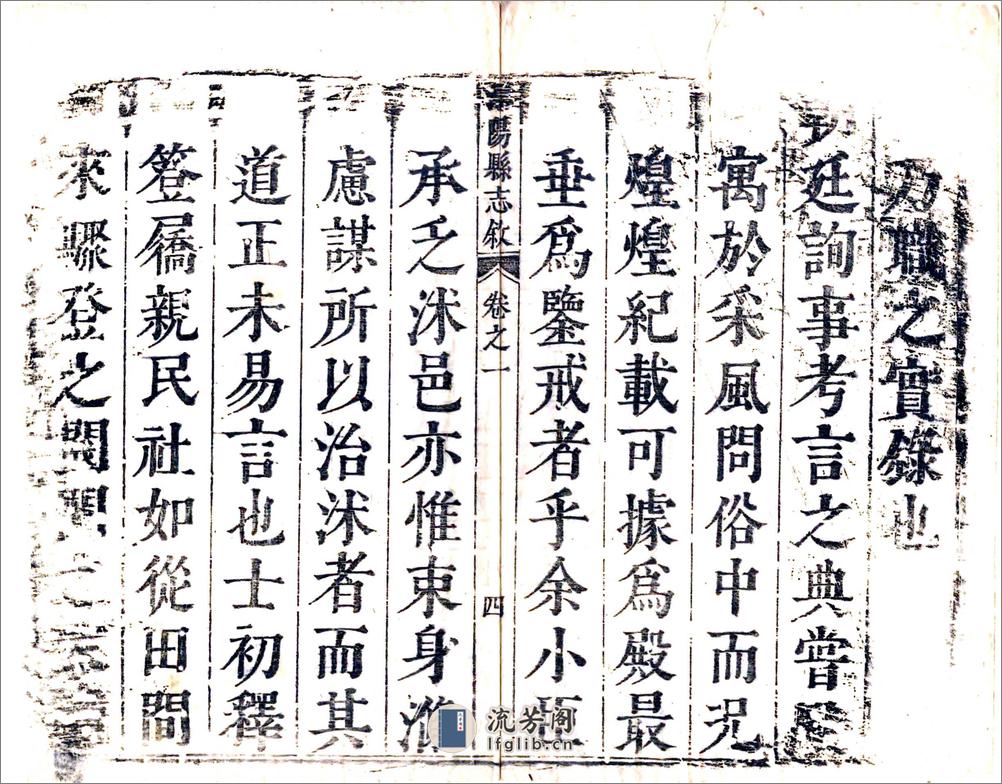 乃職之實錄也
廷詢事考言之典嘗
寓於采風問俗中而況
煌煌紀載可據爲殿最
垂爲鑒戒者乎余小臣
陽縣志敘 卷之一 四
承乏沭邑亦惟束身滌
慮謀所以治沭者而其
道正未易言也士初釋
簦屩親民社如從田間
來驟登之
流芳阁
lfglib.cn